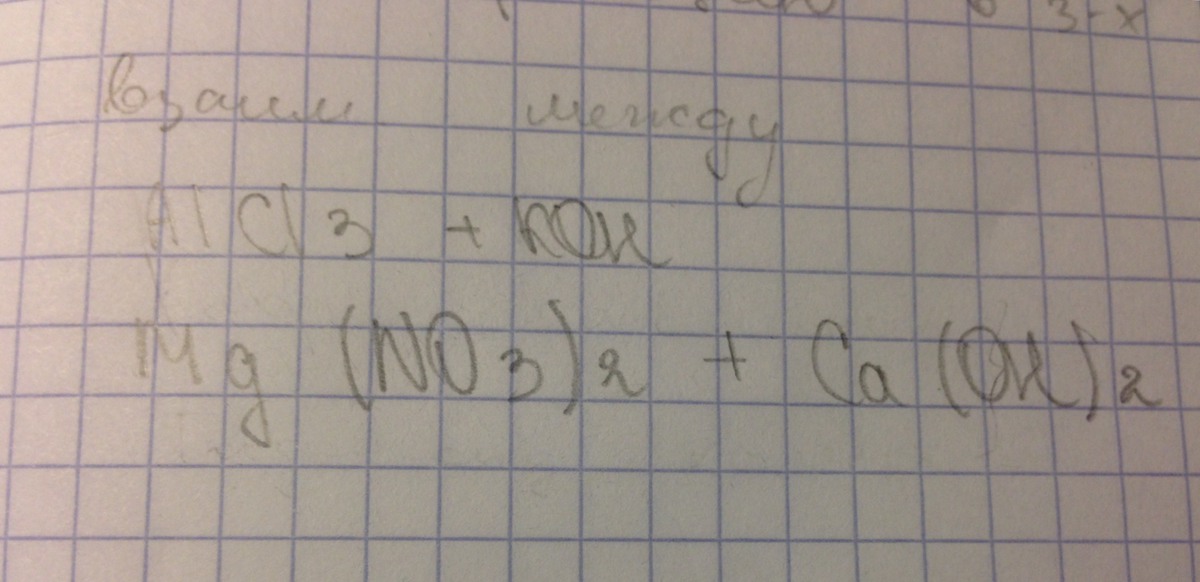 взаим между
AlCl3 + KOH
Mg (NO3)2 + Ca (OH)2